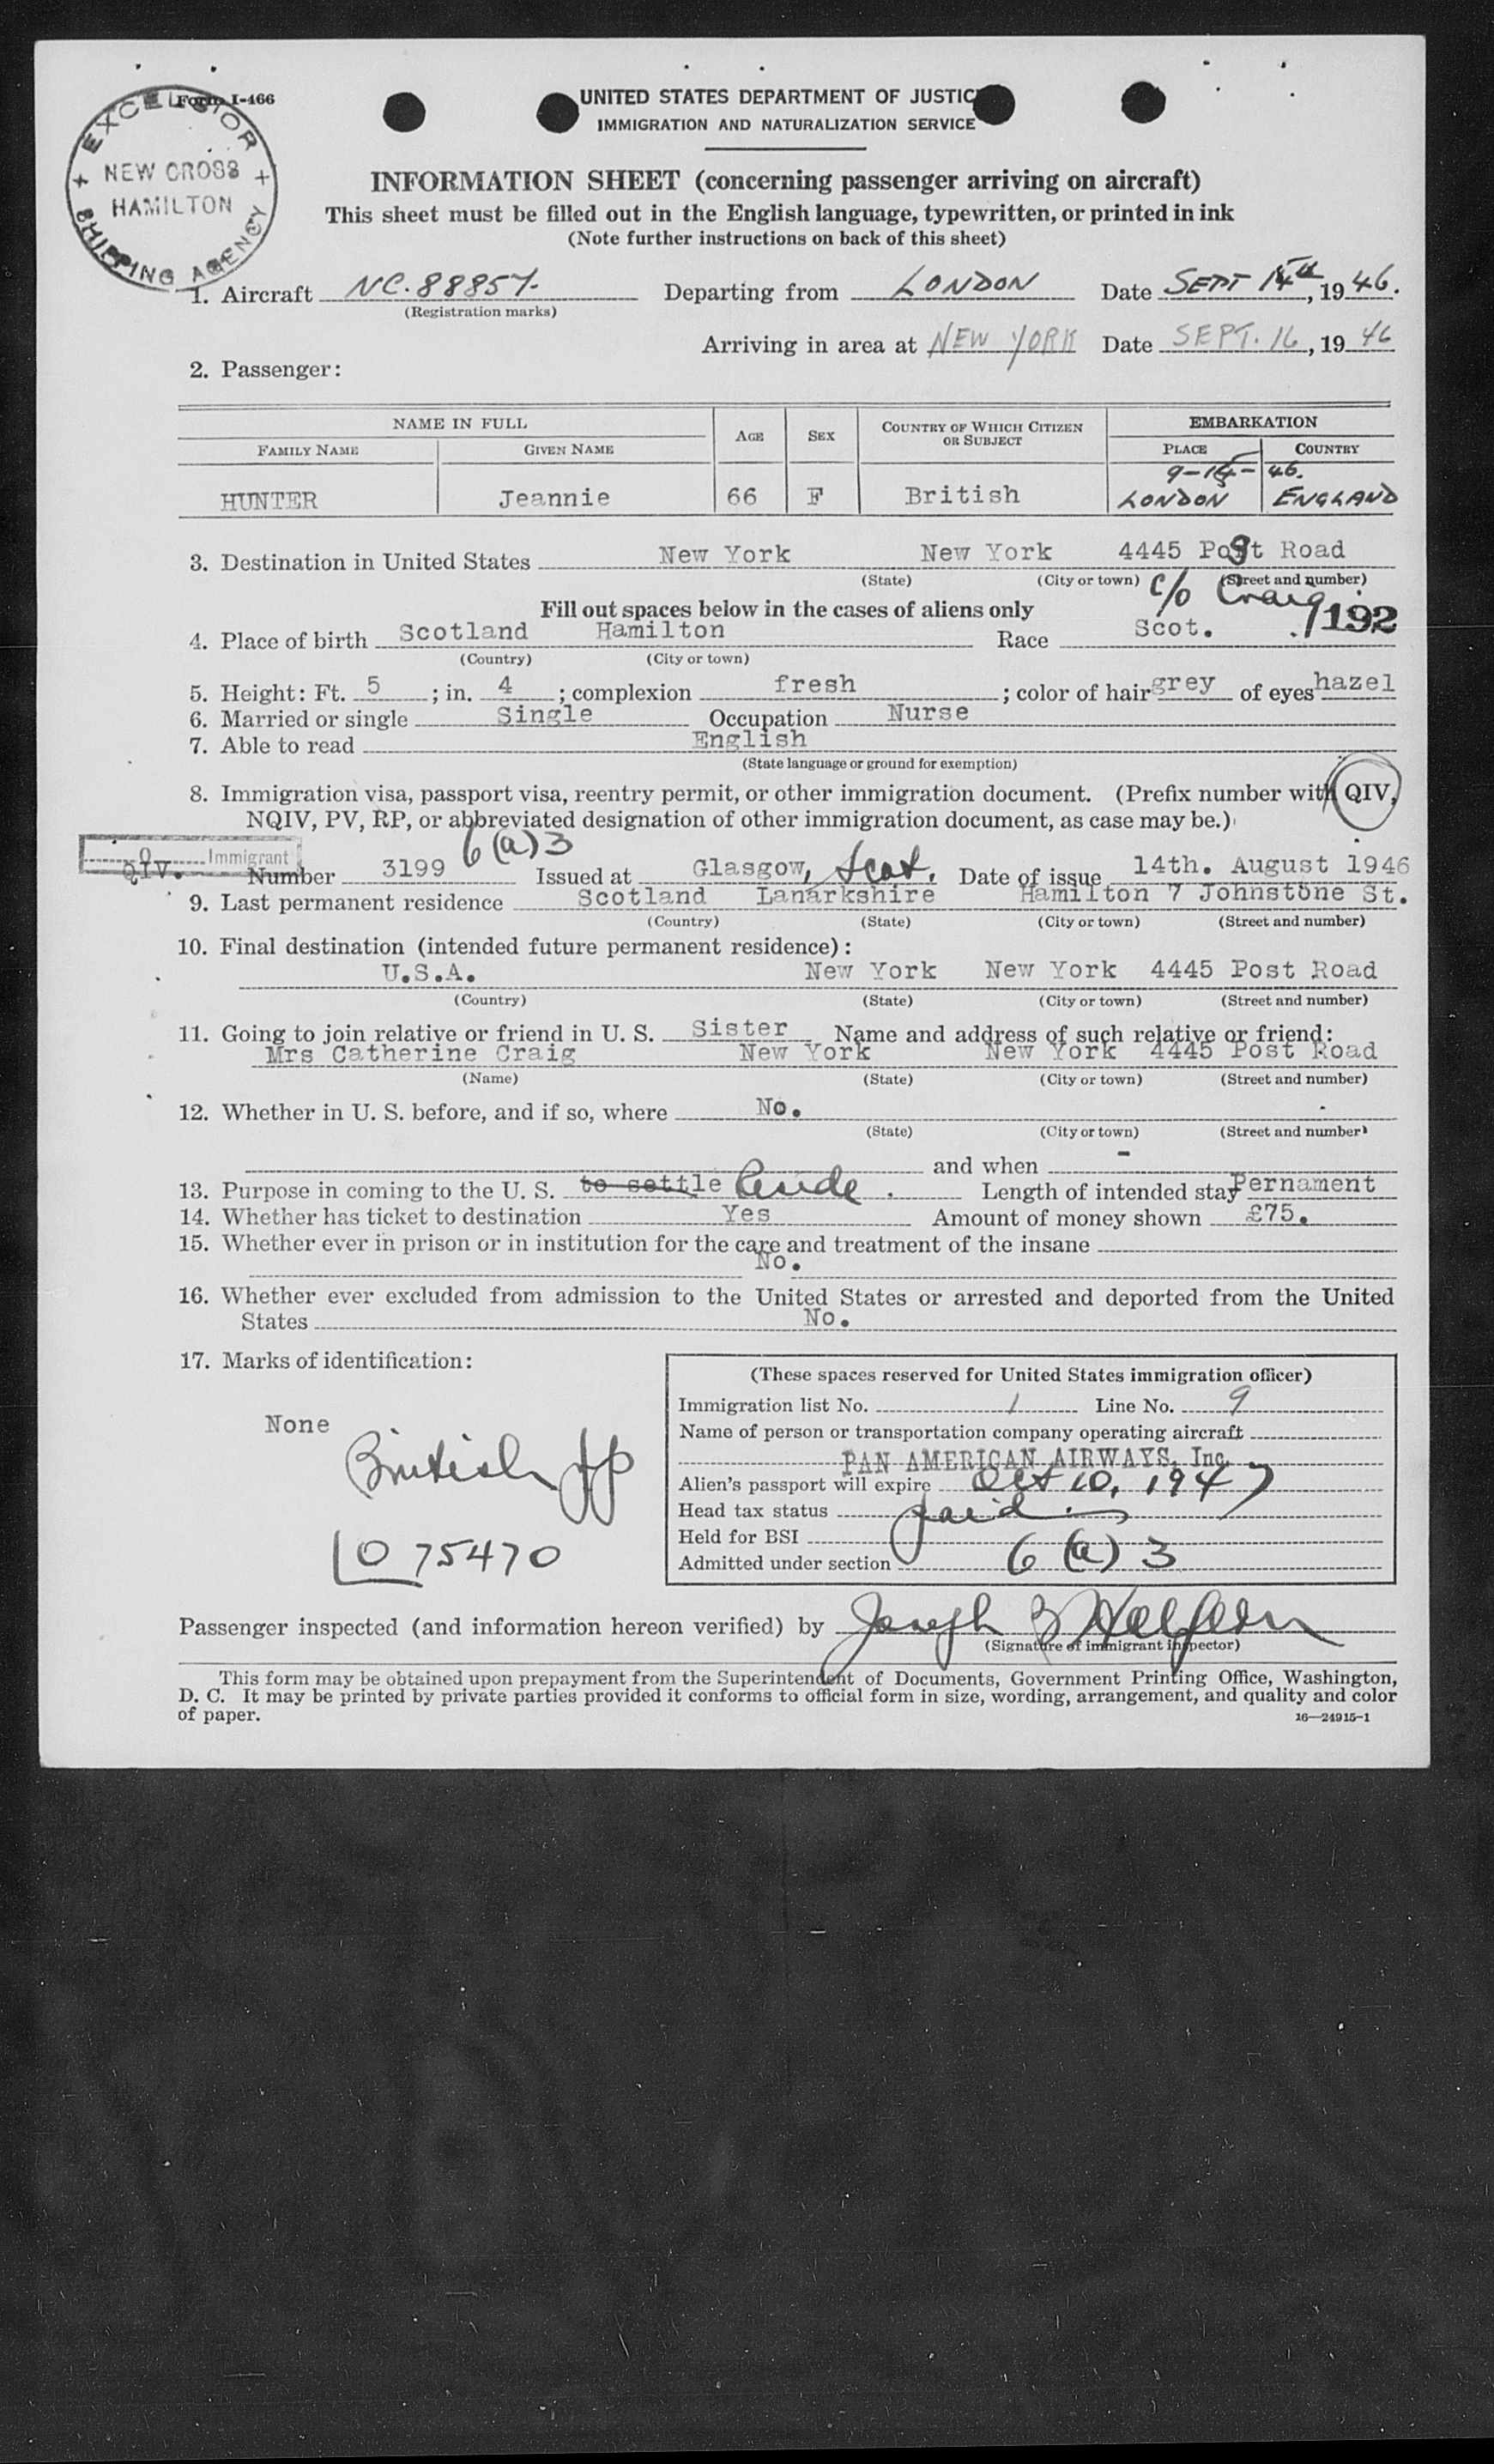 Form I-466
EXCELSIOR SHIPPING AGENCY
NEW CROSS
HAMILTON
UNITED STATES DEPARTMENT OF JUSTIC
IMMIGRATION AND NATURALIZATION SERVICE
INFORMATION SHEET (concerning passenger arriving on aircraft)
This sheet must be filled out in the English language, typewritten, or printed in ink
(Note further instructions on back of this sheet)
1. Aircraft NC.88857. Departing from LONDON Date SEPT , 1946.
(Registration marks)
Arriving in area at NEW YORK Date SEPT. 16, 1946
2. Passenger:
NAME IN FULL AGE SEX COUNTRY OF WHICH CITIZEN OR SUBJECT EMBARKATION
FAMILY NAME GIVEN NAME PLACE COUNTRY
HUNTER Jeannie 66 F British LONDON ENGLAND
3. Destination in United States New York New York 4445 Post Road
(State) (City or town) (Street and number)
c/o Craig
Fill out spaces below in the cases of aliens only
4. Place of birth Scotland Hamilton Race Scot. 192
(Country) (City or town)
5. Height: Ft. 5 ; in. 4 ; complexion fresh ; color of hair grey of eyes hazel
6. Married or single Single Occupation Nurse
7. Able to read English
(State language or ground for exemption)
8. Immigration visa, passport visa, reentry permit, or other immigration document. (Prefix number with QIV,
NQIV, PV, RP, or abbreviated designation of other immigration document, as case may be.)
6(a)3
Q Immigrant
QIV. Number 3199 Issued at Glasgow, Scot. Date of issue 14th. August 1946
9. Last permanent residence Scotland Lanarkshire Hamilton 7 Johnstone St.
(Country) (State) (City or town) (Street and number)
10. Final destination (intended future permanent residence):
U.S.A. New York New York 4445 Post Road
(Country) (State) (City or town) (Street and number)
11. Going to join relative or friend in U. S. Sister Name and address of such relative or friend:
Mrs Catherine Craig New York New York 4445 Post Road
(Name) (State) (City or town) (Street and number)
12. Whether in U. S. before, and if so, where No.
(State) (City or town) (Street and number)
and when -
13. Purpose in coming to the U. S. to settle Reside . Length of intended stay Pernament
14. Whether has ticket to destination Yes Amount of money shown £75.
15. Whether ever in prison or in institution for the care and treatment of the insane
No.
16. Whether ever excluded from admission to the United States or arrested and deported from the United
States No.
17. Marks of identification:
None
British pp
LO 75470
(These spaces reserved for United States immigration officer)
Immigration list No. 1 Line No. 9
Name of person or transportation company operating aircraft
PAN AMERICAN AIRWAYS, Inc.
Alien's passport will expire Oct 10, 1947
Head tax status paid
Held for BSI
Admitted under section 6 (a) 3
Passenger inspected (and information hereon verified) by Joseph B Halpern
(Signature of immigrant inspector)
This form may be obtained upon prepayment from the Superintendent of Documents, Government Printing Office, Washington,
D. C. It may be printed by private parties provided it conforms to official form in size, wording, arrangement, and quality and color
of paper.
16—24915-1